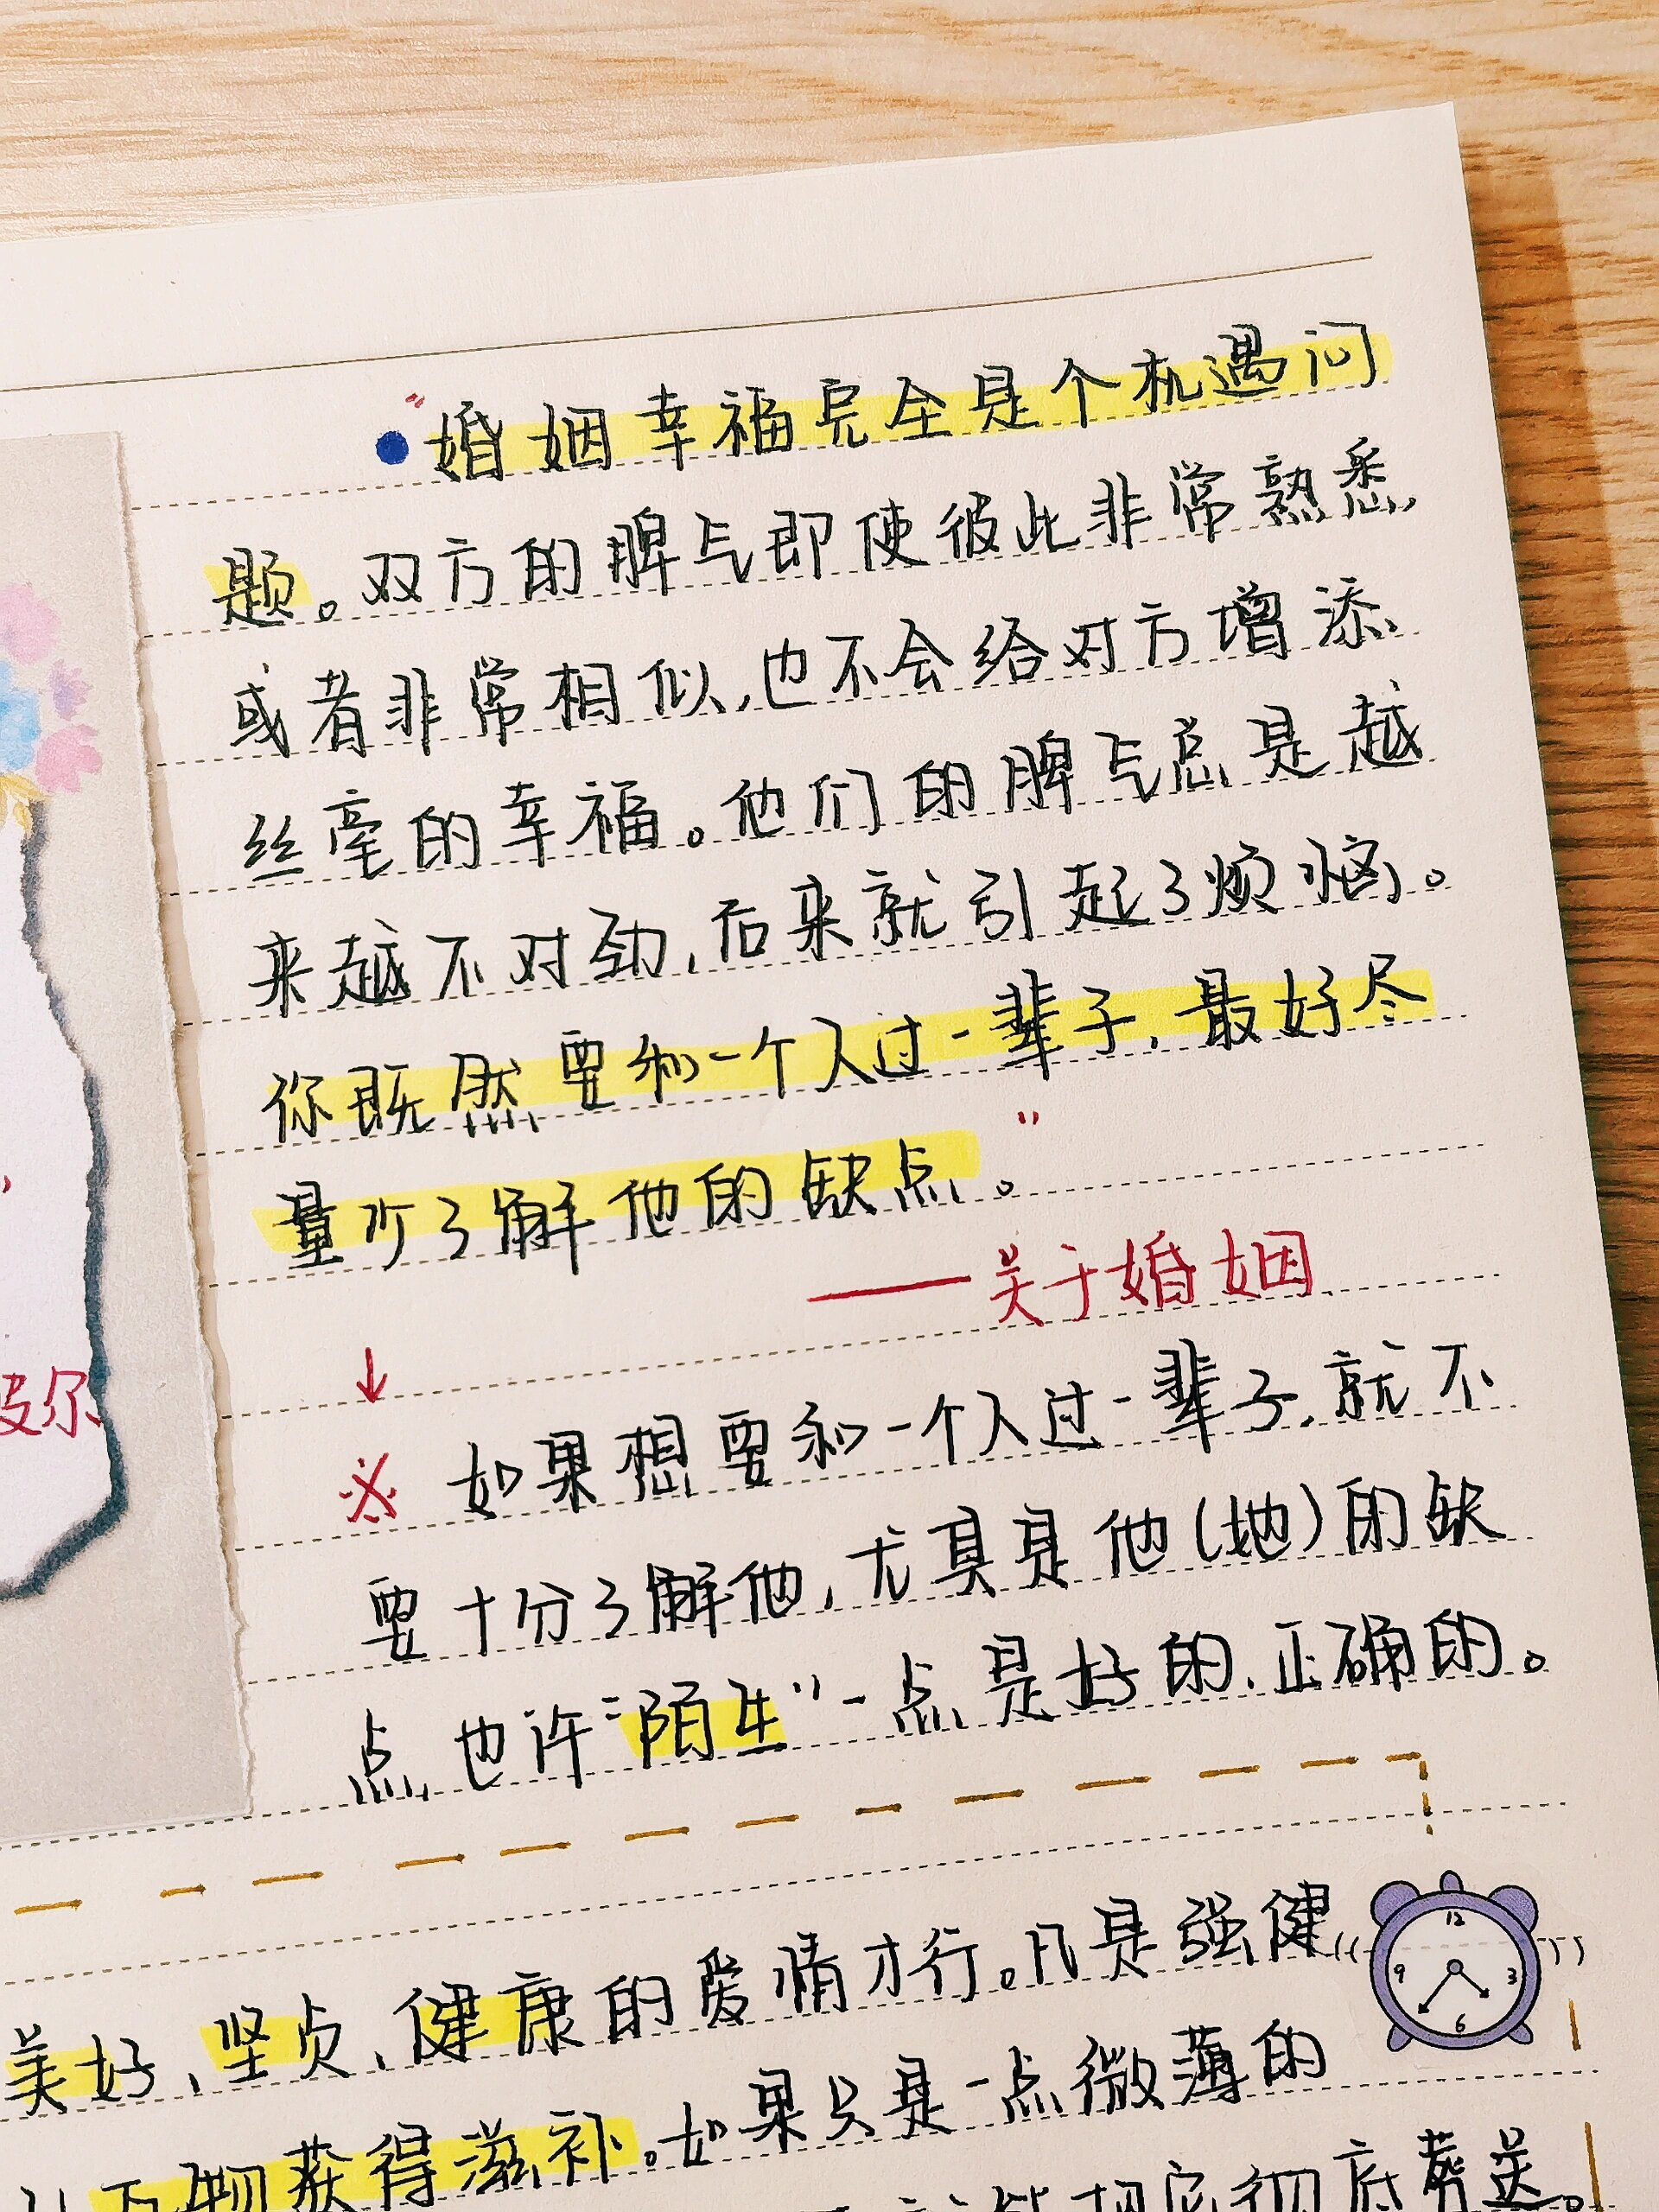 “婚姻幸福完全是个机遇问
题。双方的脾气即使彼此非常熟悉,
或者非常相似,也不会给对方增添
丝毫的幸福。他们的脾气总是越
来越不对劲,后来就引起了烦恼。
你既然要和一个人过一辈子,最好尽
量少了解他的缺点。”
——关于婚姻
↓
皮尔
※ 如果想要和一个人过一辈子,就不
要十分了解他,尤其是他(她)的缺
点,也许“陌生”一点是好的、正确的。
美好、坚贞、健康的爱情才行。凡是强健
万物获得滋补。如果只是一点微薄的
彻底葬送。
12
3
6
9